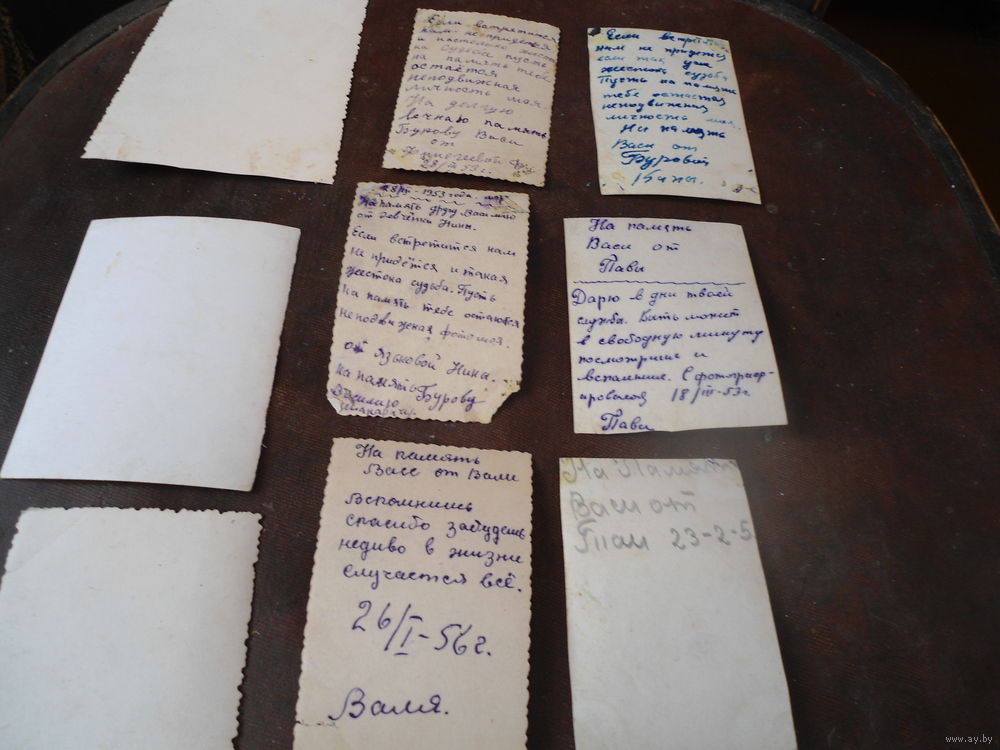 Если встретится
нам не придется
и настолько
на судьба пусть
на память тебе
остается
неподвижная
личность моя
На долгую
вечную память
Бурову Васи
от
Если
нам не придется
если так уж
жестока судьба
Пусть на память
тебе остается
неподвижная
личность моя.
На память
Васи от
Буровой
28/III-1953 года.
На память другу Василию
от девчёнки Нины.
Если встретится нам
не придётся и такая
жестока судьба. Пусть
на память тебе остаются
неподвижная фото моя.
от Языковой Нины.
на память Бурову
Василию
На память
Васи от
Павы
Дарю в дни твоей
службы. Быть может
в свободную минуту
посмотриш и
вспомниш. Сфотограф-
ировалась 18/III-53г.
Павы
На память
Васе от Вали
Вспомнишь
спасибо забудешь
недиво в жизни
случается всё.
26/I-56г.
Валя.
На Память
Васи от
Таи 23-2-5
www.ay.by